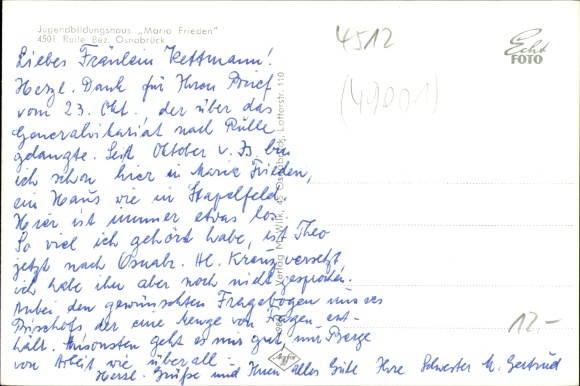 Jugendbildungshaus „Maria Frieden"
4501 Rulle Bez. Osnabrück
4512
Echt
FOTO
(49001)
Liebes Fräulein Kettmann!
Herzl. Dank für Ihren Brief
vom 23. Okt. der über das
Generalvikariat nach Rulle
gelangte. Seit Oktober v. Js. bin
ich schon hier in Maria Frieden,
ein Haus wie in Stapelfeld
Hier ist immer etwas los
So viel ich gehört habe, ist Theo
jetzt nach Osnabr. Hl. Kreuz versetzt
ich habe ihn aber noch nicht gesprochen.
Anbei den gewünschten Fragebogen unseres
Bischofs der eine Menge von Fragen ent-
hält. Ansonsten geht es mir gut, nur Berge
von Arbeit wie überall -
Herzl. Grüße und Ihnen alles Gute Ihre Schwester M. Gertrud
12.-
Verlag M. Wilk, 45 Osnabrück, Lotterstr. 110
Agfa